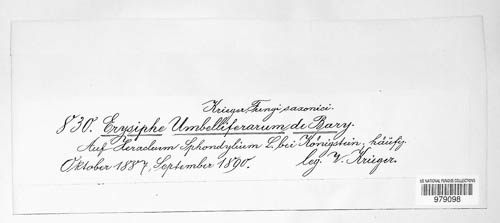 Krieger, Fungi saxonici.
830. Erysiphe Umbelliferarum de Bary.
Auf Heracleum Sphondylium L. bei Königstein, häufig.
Oktober 1887, September 1890. leg. W. Krieger.
US NATIONAL FUNGUS COLLECTIONS
979098